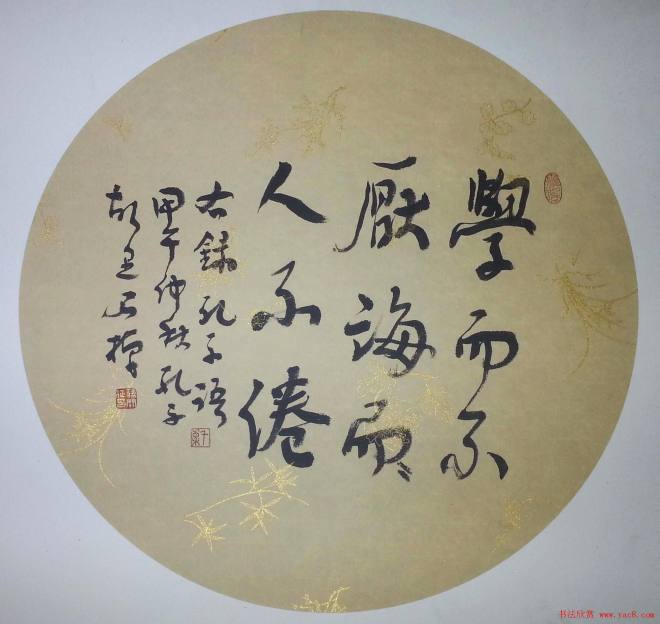 學而不
厭誨而
人不倦
右録孔子語
甲午仲秋孔子
故里
书法欣赏 www.yac8.com